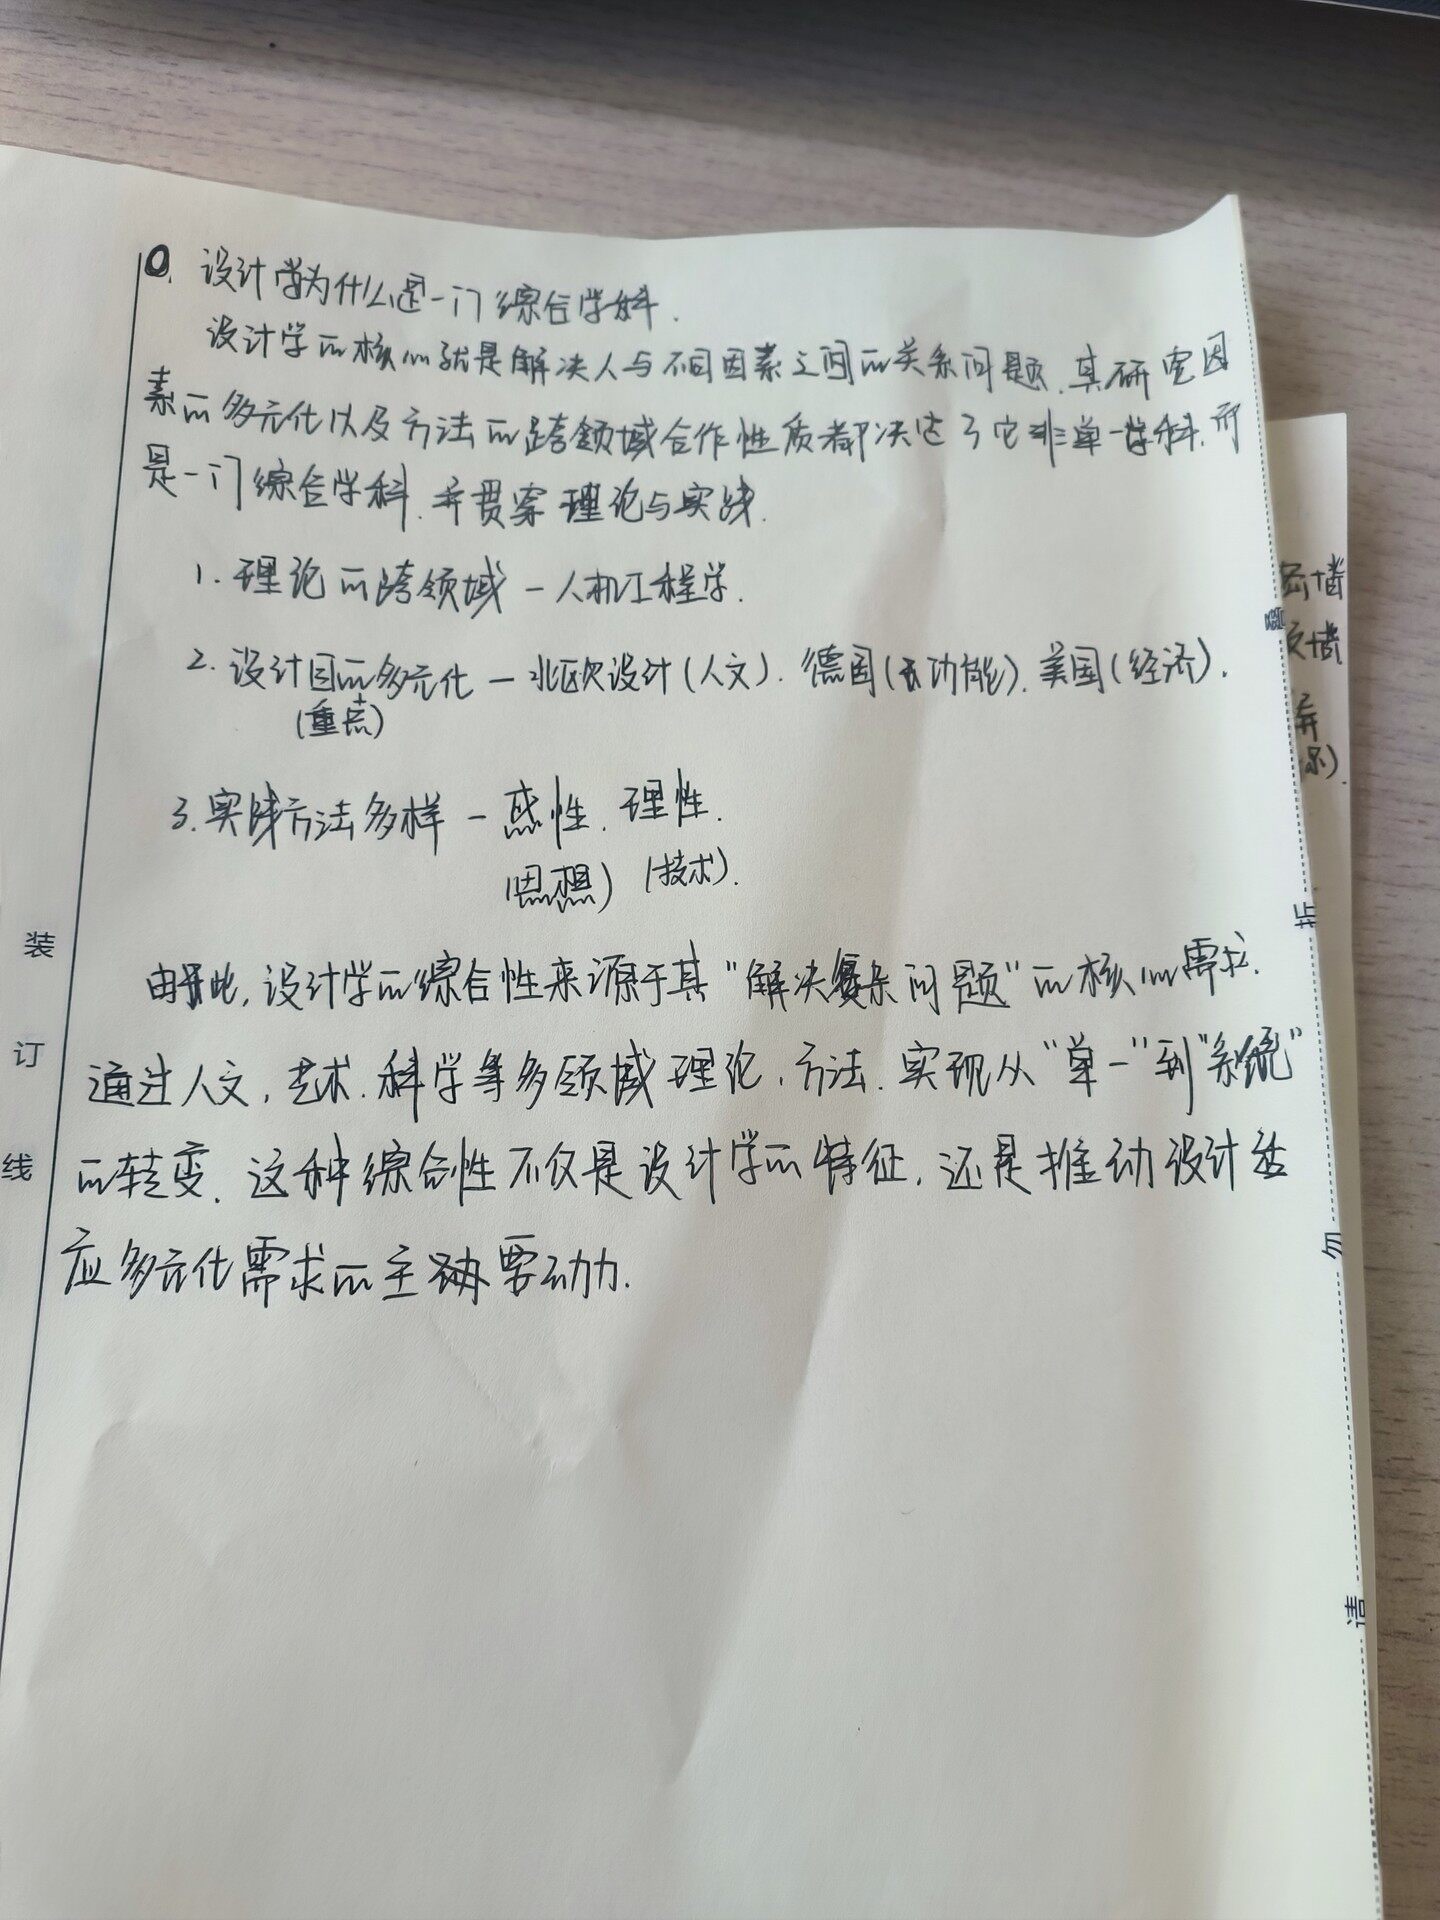 0. 设计学为什么是一门综合学科.
设计学的核心就是解决人与不同因素之间的关系问题.其研究因
素的多元化以及方法的跨领域合作性质都决定了它非单一学科.而
是一门综合学科.并贯穿理论与实践.
1. 理论的跨领域 — 人机工程学.
2. 设计因的多元化 — 北欧设计(人文). 德国(功能). 美国(经济).
(重点)
3. 实践方法多样 — 感性. 理性.
(思想) (技术).
由此, 设计学的综合性来源于其"解决复杂问题"的核心需求.
通过人文, 艺术. 科学等多领域理论, 方法. 实现从"单一"到"系统"
的转变. 这种综合性不仅是设计学的特征, 还是推动设计适
应多元化需求的主要动力.
装
订
线
折
勿
请